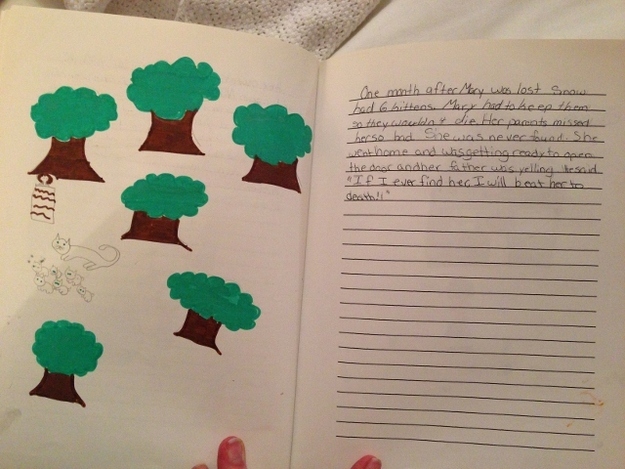 One month after Mary was lost Snow
had 6 kittens. Mary had to keep them
so they wouldn't die. Her parents missed
her so bad. She was never found. She
went home and was getting ready to open
the door and her father was yelling. He said
"If I ever find her, I will beat her to
death!!"